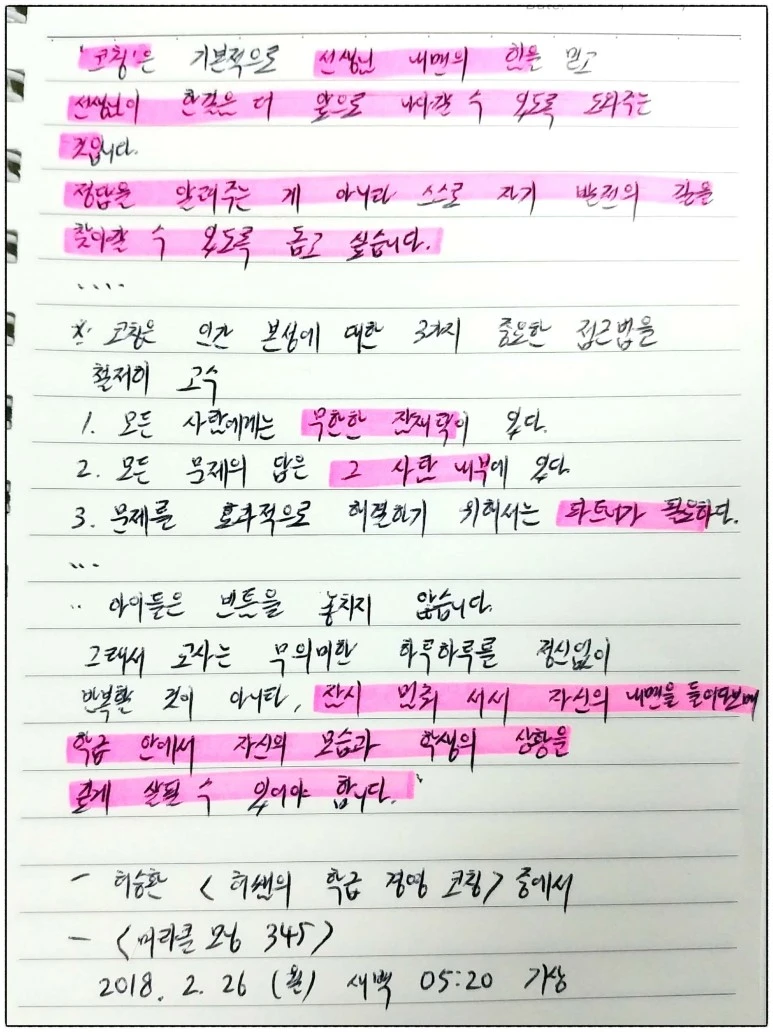 '코칭'은 기본적으로 선생님 내면의 힘을 믿고
선생님이 한걸음 더 앞으로 나아갈 수 있도록 도와주는
것입니다.
정답을 알려주는 게 아니라 스스로 자기 발전의 길을
찾아갈 수 있도록 돕고 싶습니다.
....
※ 코칭은 인간 본성에 대한 3가지 중요한 접근법을
철저히 고수
1. 모든 사람에게는 무한한 잠재력이 있다.
2. 모든 문제의 답은 그 사람 내부에 있다.
3. 문제를 효과적으로 해결하기 위해서는 파트너가 필요하다.
...
.. 아이들은 빈틈을 놓치지 않습니다.
그래서 교사는 무의미한 하루하루를 정신없이
반복할 것이 아니라, 잠시 멈춰 서서 자신의 내면을 들여다보며
학급 안에서 자신의 모습과 학생의 상황을
깊게 살필 수 있어야 합니다."
- 허승환 <허쌤의 학급 경영 코칭> 중에서
- <미라클 모닝 345>
2018. 2. 26 (월) 새벽 05:20 기상